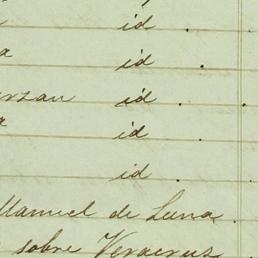 id
id .
id .
id .
id .
Manuel de Luna .
sobre Veracruz